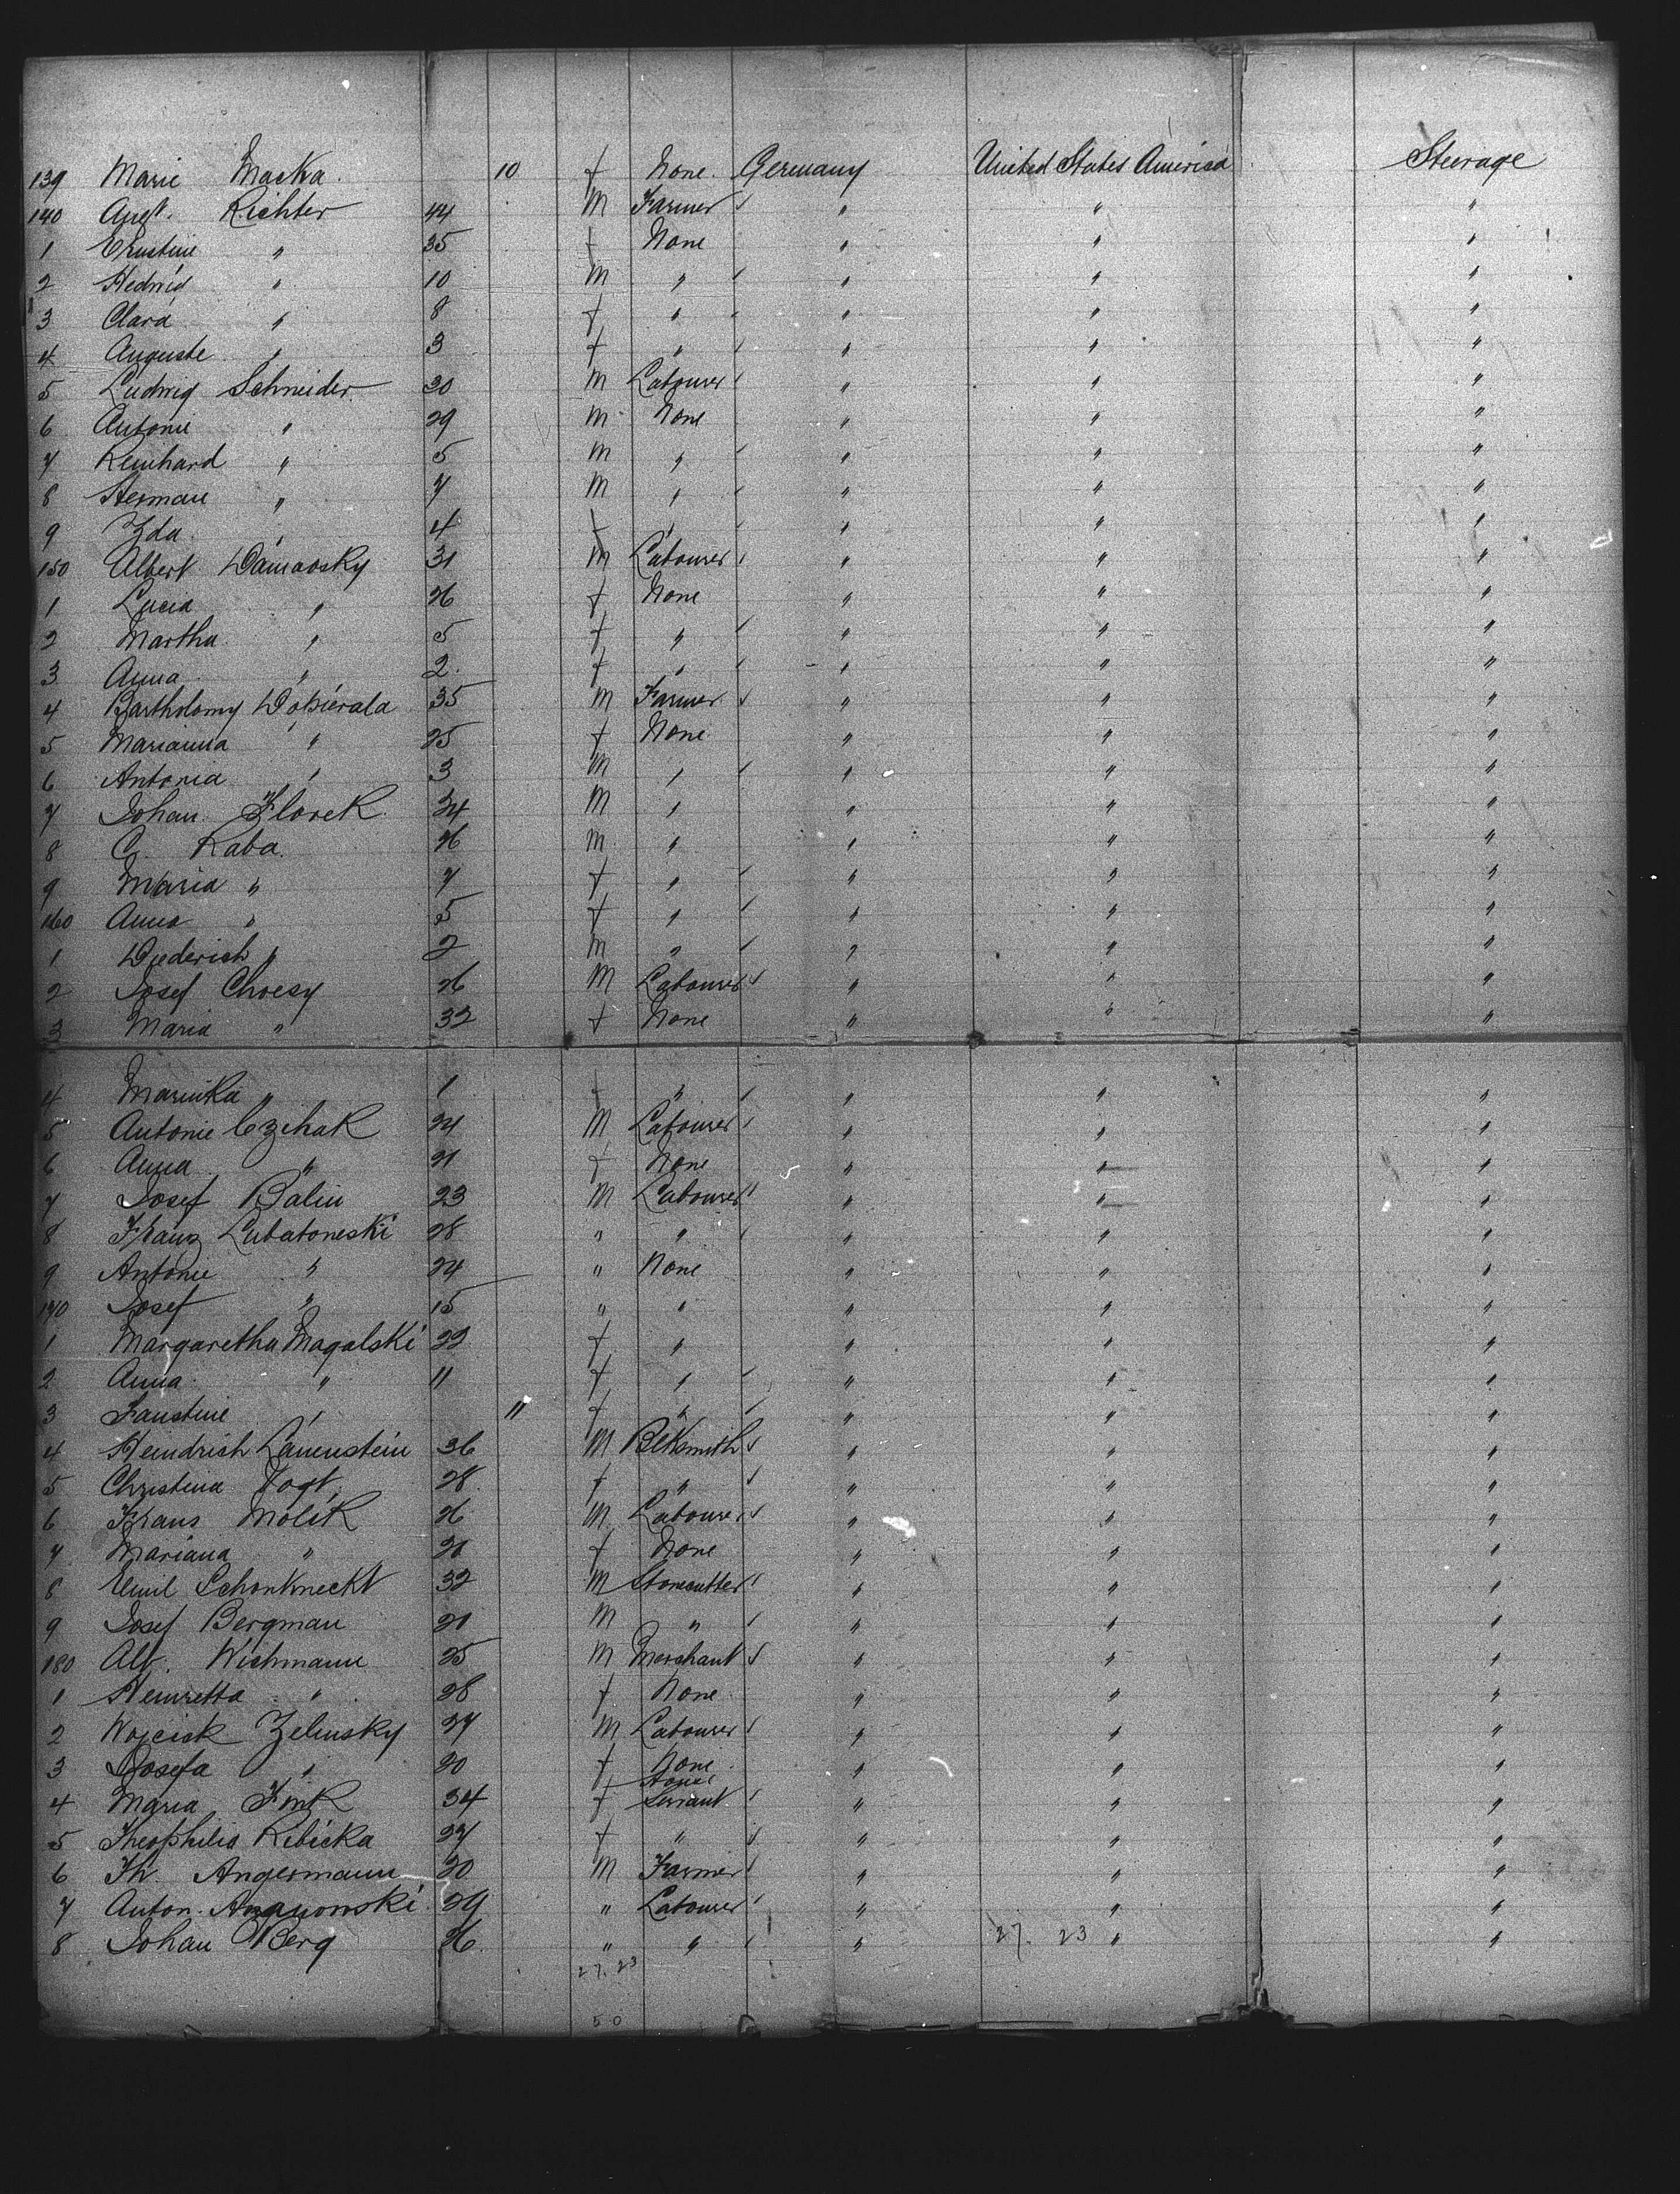 139 Marie Maska 10 f None Germany United States America Steerage
140 Augst. Richter 44 M Farmer " " "
1 Ernstine " 35 f None " " "
2 Hedwig " 10 M " " " "
3 Clara " 8 f " " " "
4 Auguste " 3 f " " " "
5 Ludwig Schneider 30 M Labourer " " "
6 Antonie " 29 M None " " "
7 Reinhard " 5 M " " " "
8 Herman " 7 M " " " "
9 Ida " 4 f " " " "
150 Albert 31 M Labourer " " "
1 Lucia " 26 f None " " "
2 Martha " 5 f " " " "
3 Anna " 2 f " " " "
4 Bartholomy Dobierala 35 M Farmer " " "
5 Marianna " 25 f None " " "
6 Antonia " 3 M " " " "
7 Johan Florek 34 M " " " "
8 C. Kaba 26 M " " " "
9 Maria " 7 f " " " "
160 Anna " 5 f " " " "
1 Diederich " 2 M " " " "
2 Josef Choesy 26 M Labourer " " "
3 Maria " 32 f None " " "
4 Marinka " 1 f " " " "
5 Antonie Czihak 24 M Labourer " " "
6 Anna " 21 f None " " "
7 Josef Balin 23 M Labourer " " "
8 Franz Lubatoneski 28 " " " " "
9 Antonie " 24 " None " " "
170 Josef " 15 " " " " "
1 Margaretha Magalski 22 f " " " "
2 Anna " 11 f " " " "
3 Faustine " 11 f " " " "
4 Heindrich Lauenstein 36 M Blksmith " " "
5 Christina Vogt 28 f " " " "
6 Frans Molik 26 M Labourer " " "
7 Mariana " 21 f None " " "
8 Emil Schonknecht 32 M Stonecutter " " "
9 Josef Bergman 21 M " " " "
180 Alb. Wichmann 25 M Merchant " " "
1 Henretta " 28 f None " " "
2 Wojcick Zelinsky 27 M Labourer " " "
3 Josefa " 20 f None " " "
4 Maria Fink 34 f House Servant " " "
5 Theophilia Ribicka 27 f " " " "
6 Fr. Angermann 20 M Farmer " " "
7 Anton 29 " Labourer " " "
8 Johan Berg 26 " " " 27. 23 " "
27. 23
50